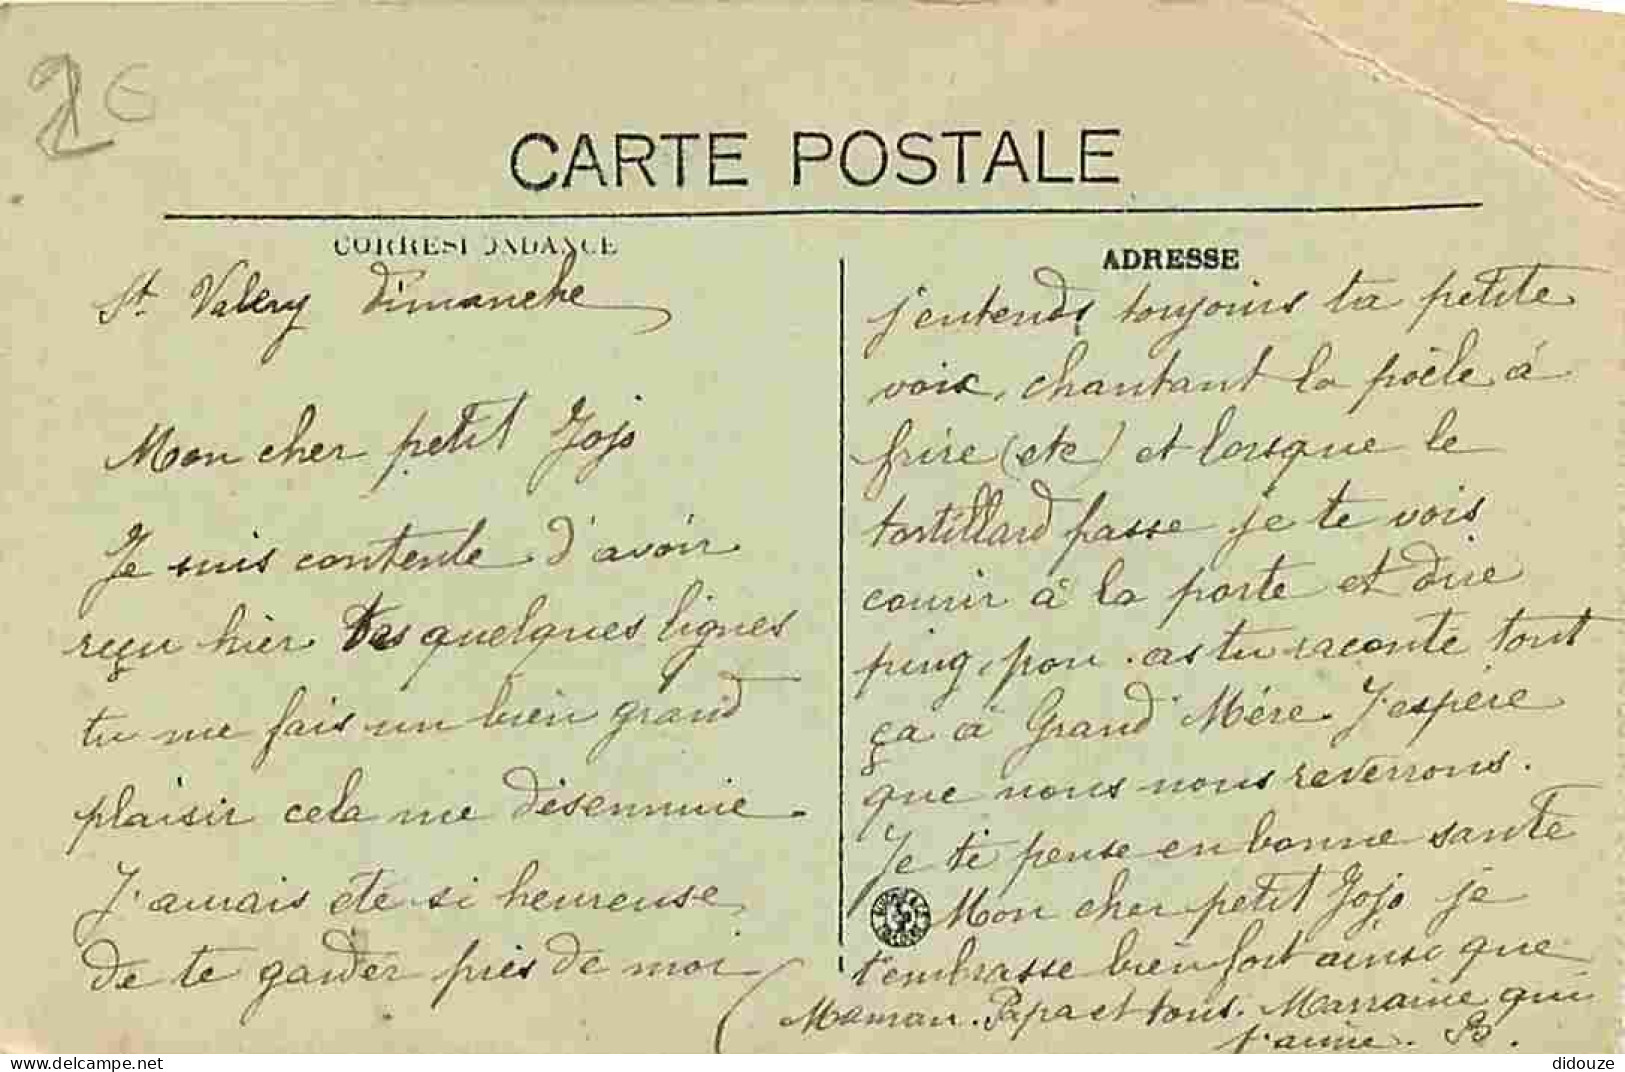 2€
CARTE POSTALE
CORRESPONDANCE
St Valery Dimanche
Mon cher petit Jojo
Je suis contente d'avoir
reçu hier tes quelques lignes
tu me fais un bien grand
plaisir cela me désennuie.
J'aurais été si heureuse
de te garder près de moi
ADRESSE
j'entends toujours ta petite
voix, chantant la poële à
frire (etc) et lorsque le
tortillard passe je te vois
courir à la porte et dire
ping, pon. as tu raconté tout
ça à Grand' Mère. J'espère
que nous nous reverrons.
Je te pense en bonne santé
Mon cher petit Jojo je
t'embrasse bien fort ainsi que
Maman. Papa et tous. Marraine qui
t'aime. B.
didouze